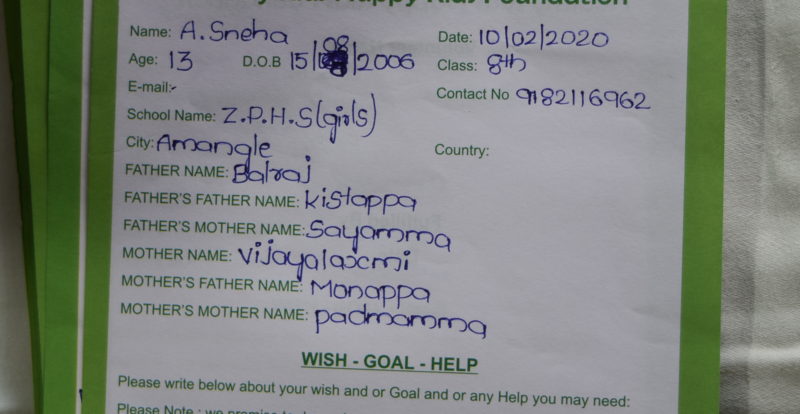 Happy Kids Foundation
Name: A. Sneha Date: 10/02/2020
Age: 13 D.O.B 15/08/2006 Class: 8th
E-mail:- Contact No 9182116962
School Name: Z.P.H.S(girls)
City: Amangle Country:
FATHER NAME: Balraj
FATHER'S FATHER NAME: Kistappa
FATHER'S MOTHER NAME: Sayamma
MOTHER NAME: Vijayalaxmi
MOTHER'S FATHER NAME: Monappa
MOTHER'S MOTHER NAME: padmamma
WISH - GOAL - HELP
Please write below about your wish and or Goal and or any Help you may need:
Please Note : we promise to